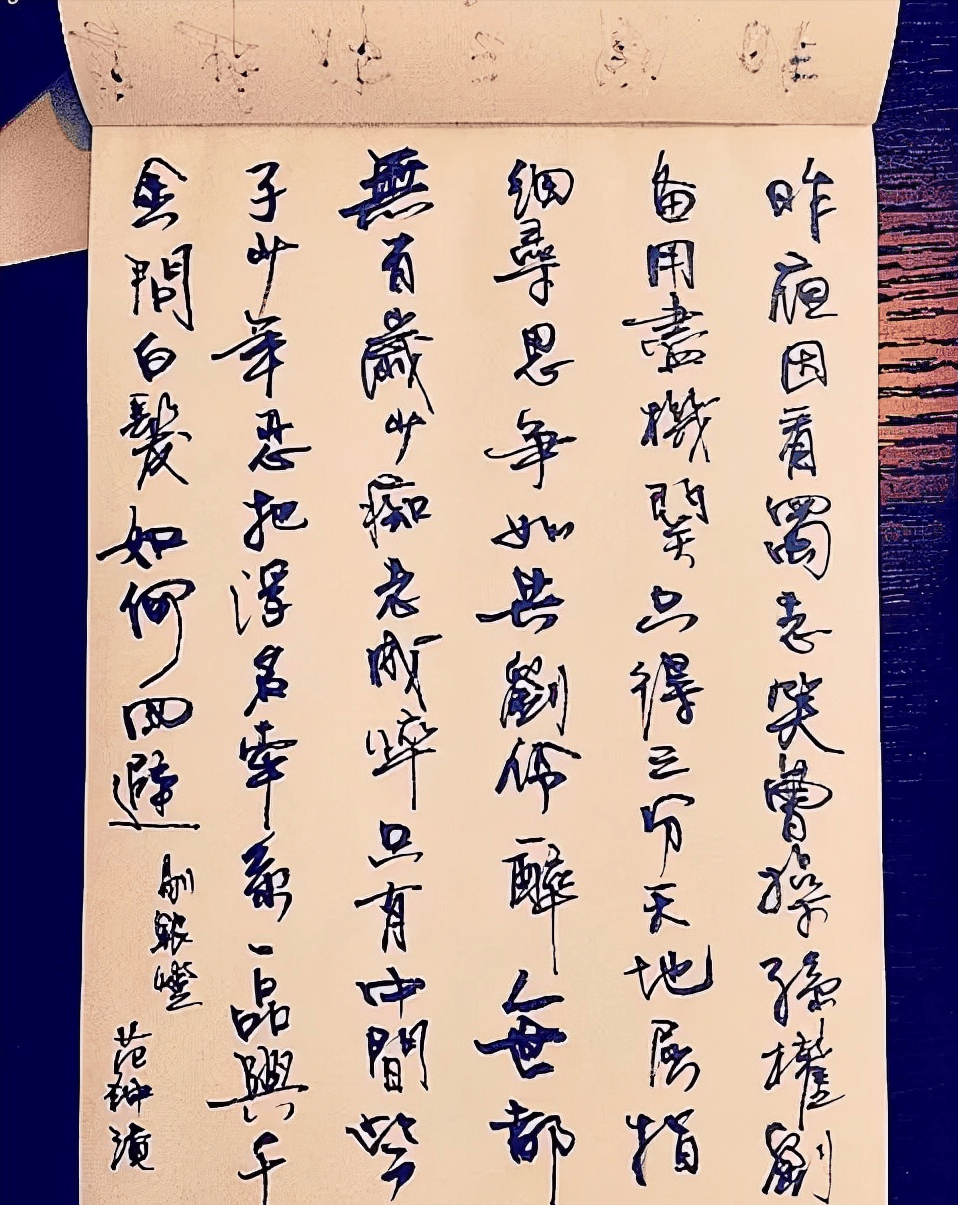 昨夜因看蜀志笑曹操孫權劉
备用盡機関只得三分天地屈指
細尋思争如共劉伶醉人世都
無百歲少痴老成悴只有中間些
子少年忍把浮名牽系一品與千
金問白髮如何回避
剔銀燈
范仲淹